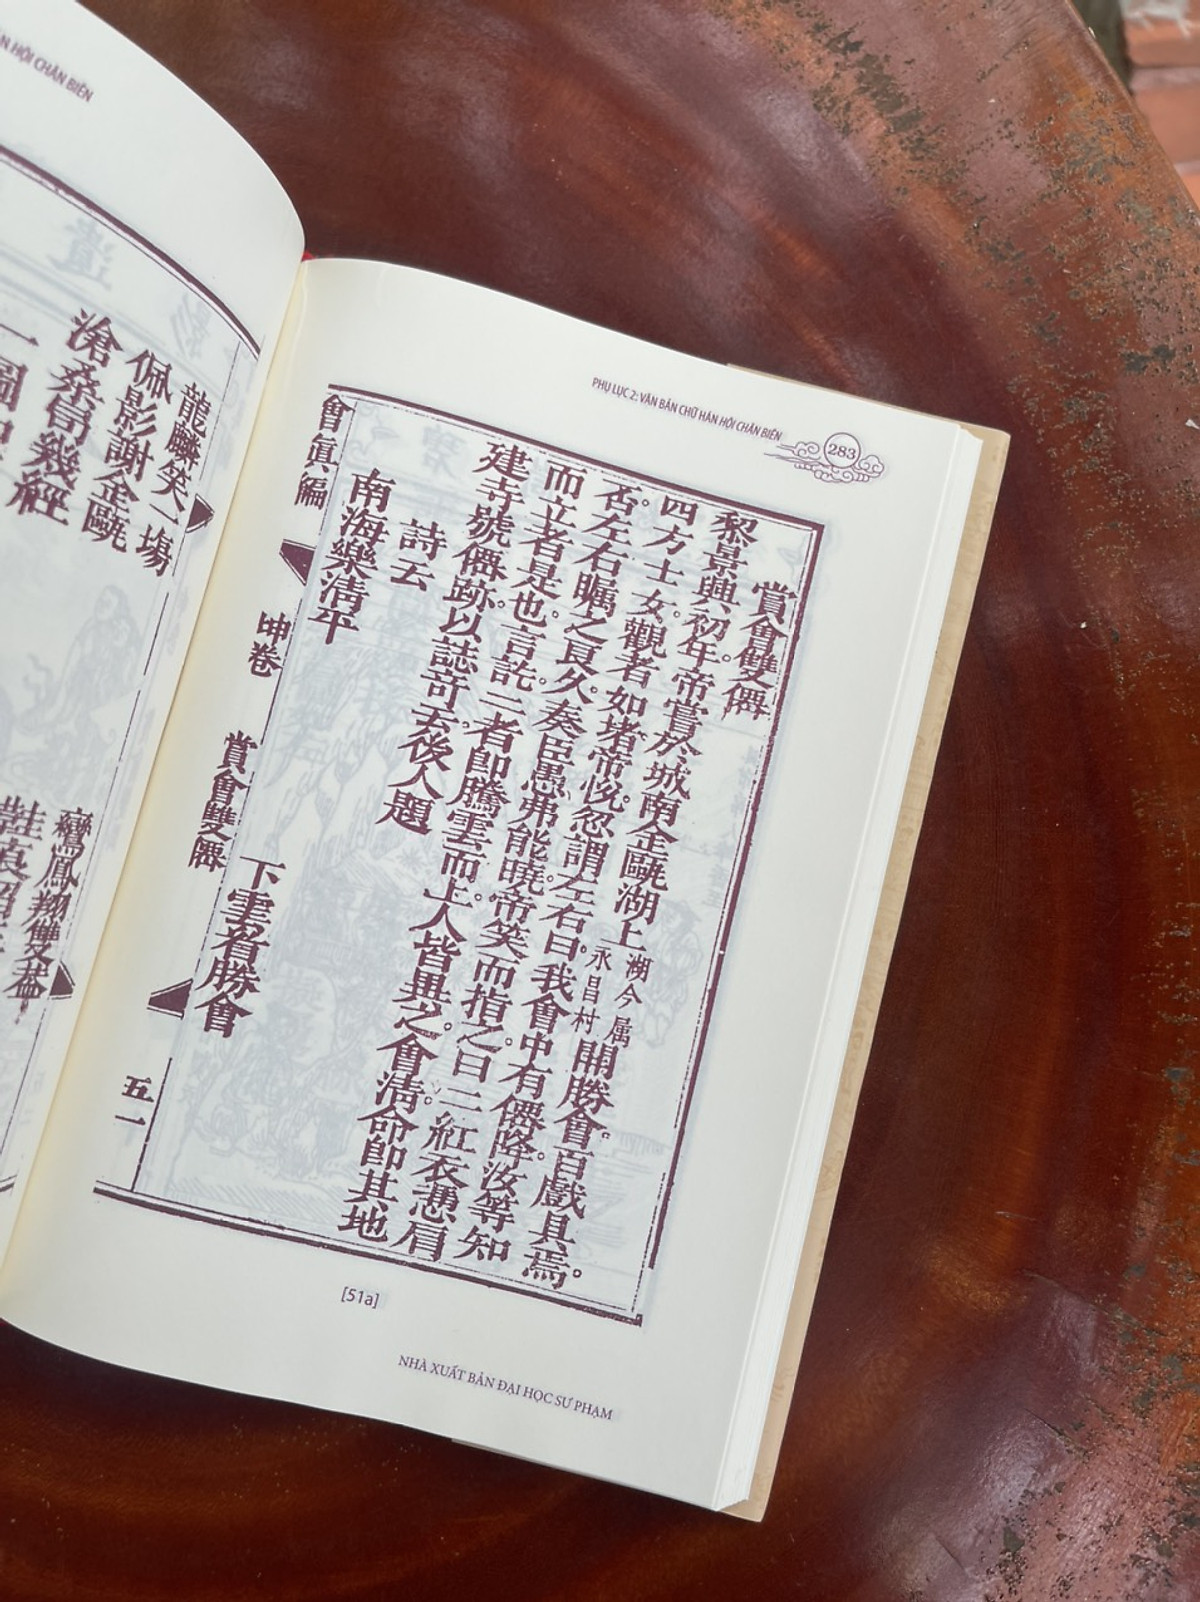 HỘI CHÂN BIÊN
龍麟笑一塲
佩影謝金甌
滄桑曾幾經
PHỤ LỤC 2: VĂN BẢN CHỮ HÁN HỘI CHÂN BIÊN
283
賞會雙僊
黎景興初年。帝賞於城南金甌湖上湖今屬永昌村開勝會。百戲具焉。
四方士女觀者如堵。帝悅。忽謂左右曰我會中有僊降。汝等知
否。左右矚之良久。奏臣愚弗能曉。帝笑而指之曰二紅衣憑肩
而立者是也。言訖二者即騰雲而上。人皆異之。會淸命即其地
建寺號僊跡。以誌奇云後人題
詩云
南海樂淸平 下雲看勝會
會眞編 坤卷 賞會雙僊 五一
[51a]
NHÀ XUẤT BẢN ĐẠI HỌC SƯ PHẠM